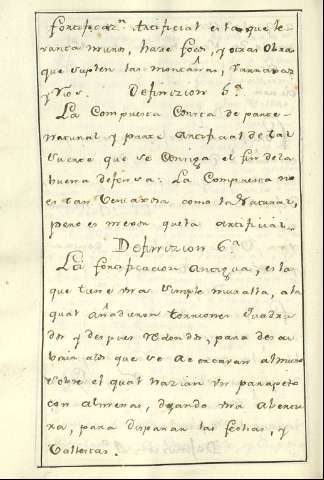 fortificaz.n Artificial es la que le-
vanta muros, haze fosos, y otras Obras
que suplen las montañas, barrancas
y Rios. Definizion 5.a
La Compuesta Consta de parte
Natural y parte Artificial de tal
suerte que se Consiga el fin de la
buena defensa: La Compuesta no
es tan Ventaxosa como la Natural,
pero es mexor que la Artificial.
Definizion 6.a
La fortificacion Antigua, es la
que tiene una simple muralla, a la
qual añadieron torreones quadra-
dos y despues redondos, para
que se acercaran al muro
sobre el qual hazian un parapeto
con almenas, dexando una abertu-
ra, para disparar las flechas, y
Vallestas.